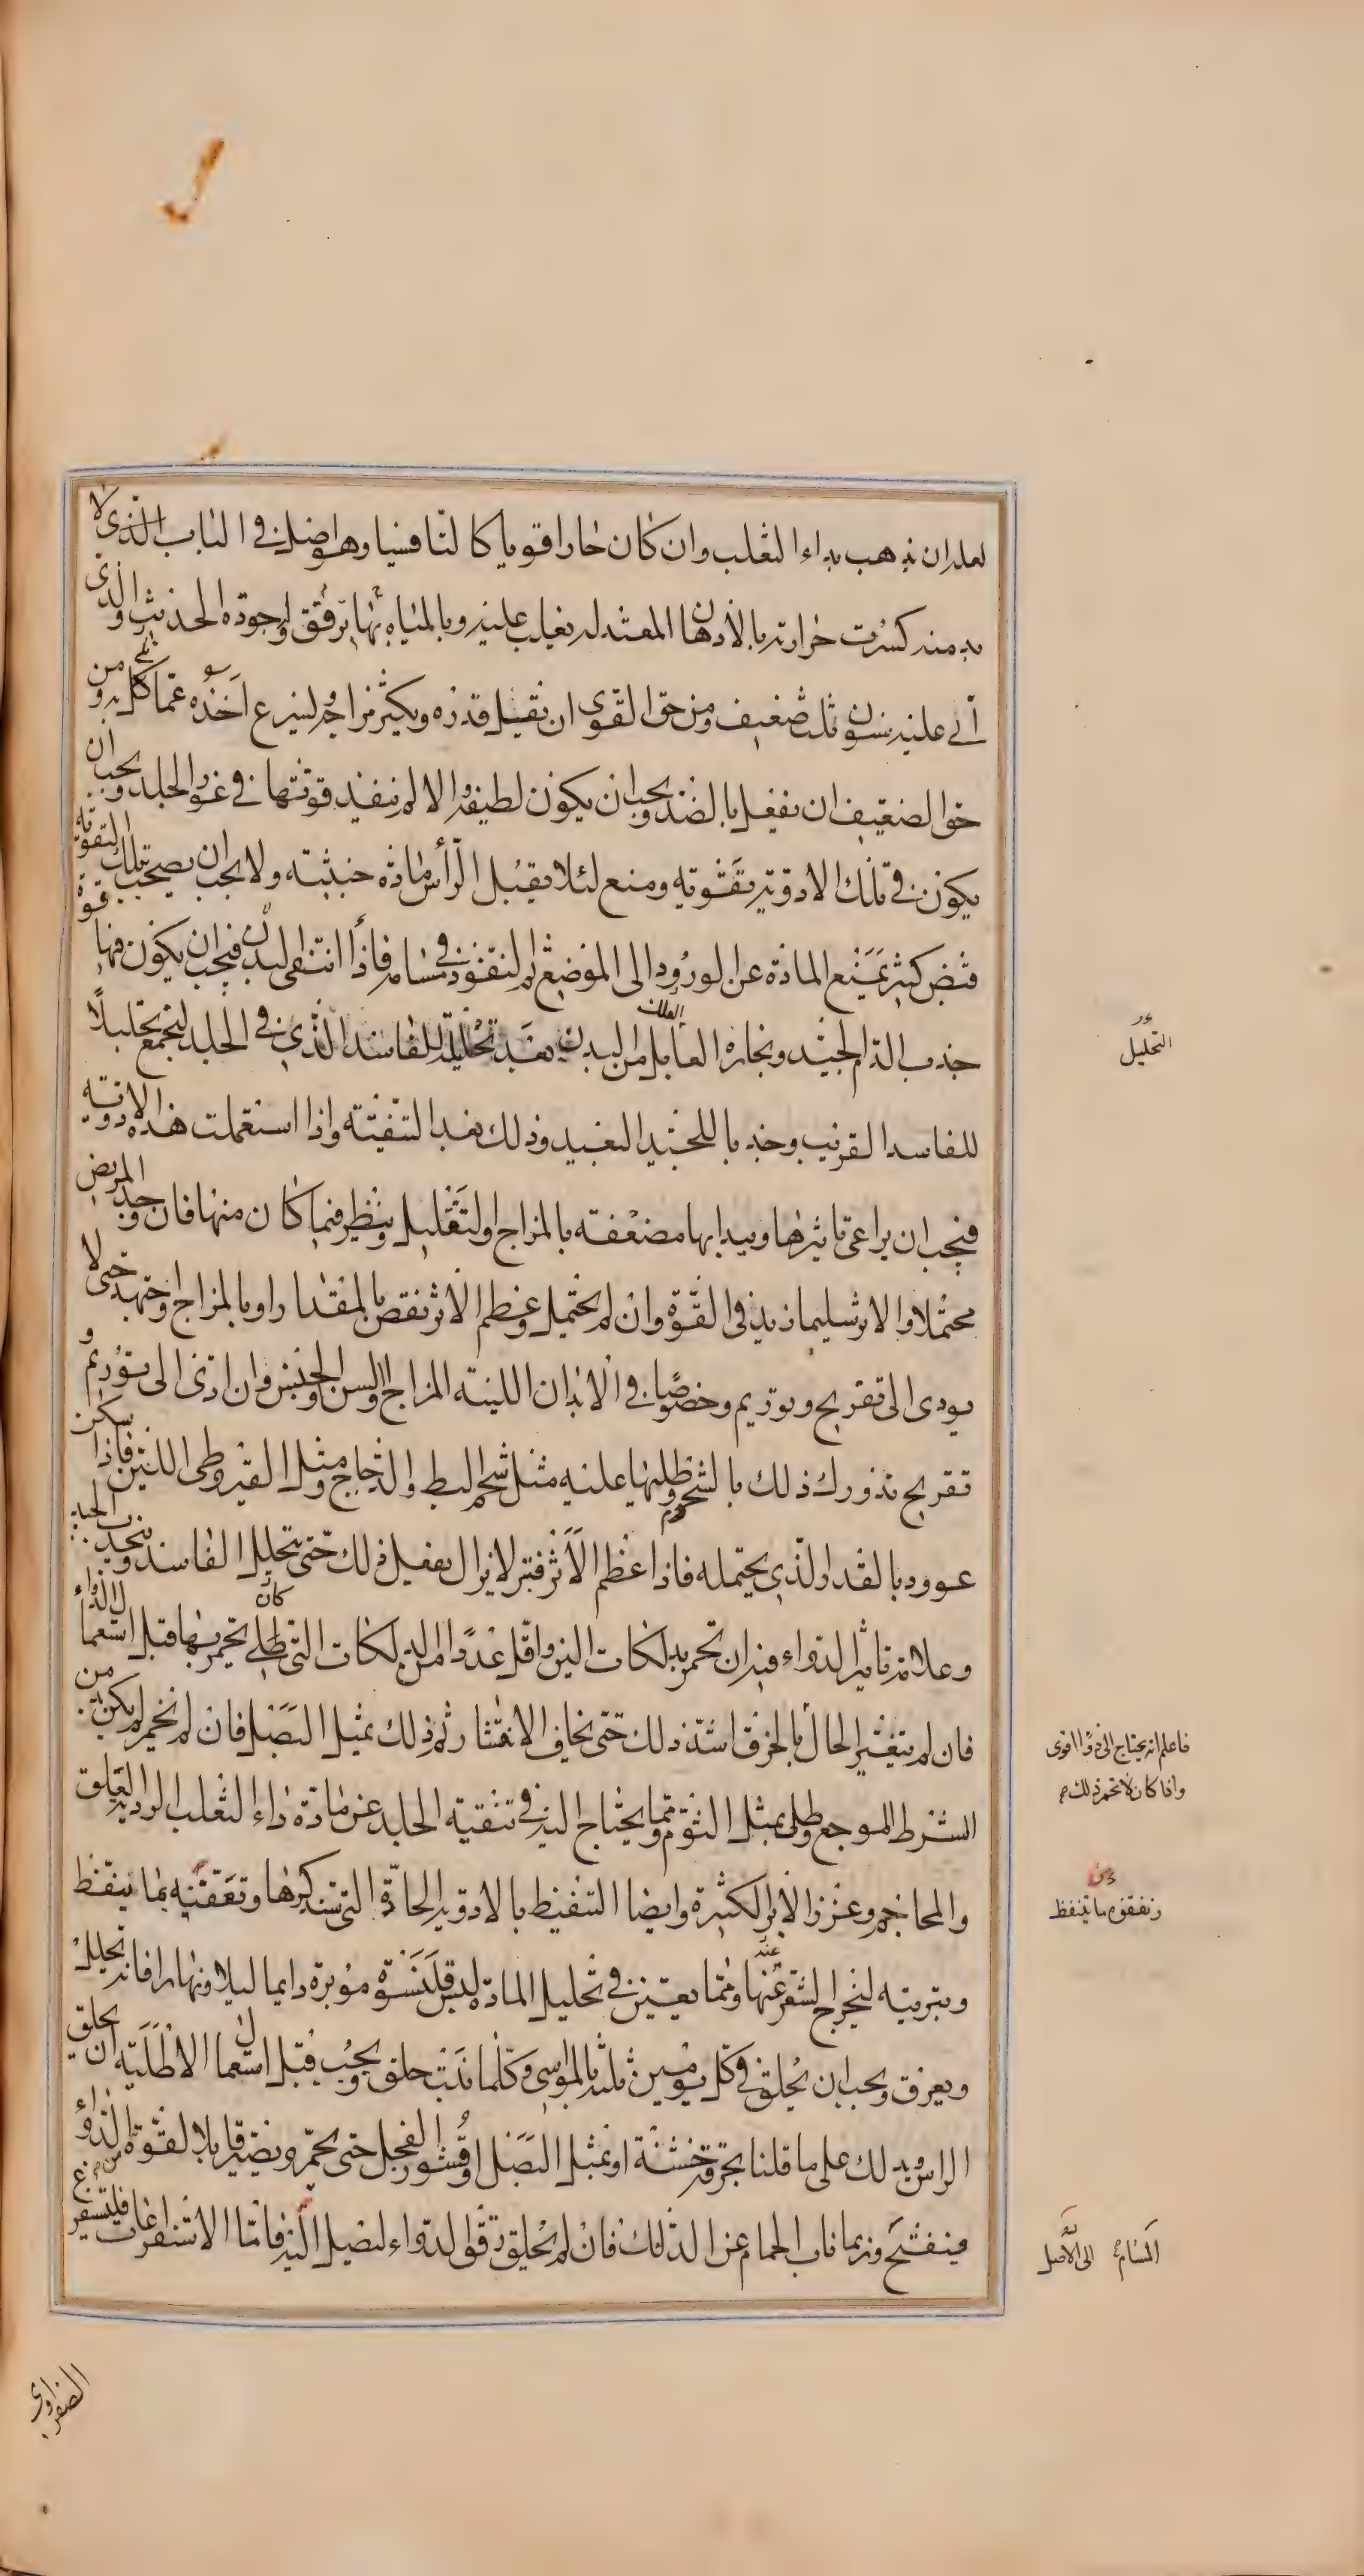 لعله ان يذهب بداء الثعلب وان كان حارا قويا كالثافسيا وهو اصل في الباب الذي لا
بد منه كسرت حرارته بالادهان المعتدلة يغلب عليه وبالمياه ثم ترفق واجوده الحديث والذي
أتى عليه سنون ثلث ضعيف ومن حق القوى ان يقلل قدره ويكثر مزاجه ليسرع اخذه عما
حق الضعيف ان يفعل بالضد ويجب ان يكون لطيفة والا لم ينفذ قوتها في غور الجلد ويجب ان
يكون في تلك الادوية تقوية ومنع لئلا يقبل الرأس مادة خبيثة ولا يجب ان يصحب تلك التقوية قوة
قبض كثير يمنع المادة عن الورود الى الموضع ثم لنفوذ في مسامه فاذا انتقى البدن فيجب ان يكون فيها
جذب الدم الجيد وبخاره من البدن بعد تحليله للفاسد الذي في الجلد ليجمع تحليلا
للفاسد القريب وجذبا للجيد البعيد وذلك بعد التنقية واذا استعملت هذه الادوية
فيجب ان يراعى تاثيرها ويبدا بها مضعفة بالمزاج او لتقليل وينظر فيما كان منها فان وجد المريض
محتملا والاثر سليما زيد في القوة وان لم يحتمل وعظم الاثر نقص بالمقدار او بالمزاج وجهد حتى لا
يودى الى تقريح وتوريم وخصوصا في الابدان اللينة المزاج او السن او الجنس وان ادى الى توريم و
تقريح تدورك ذلك بالشحوم وطليها عليه مثل شحم البط والدجاج ومثل القيروطي اللين فاذا سكن
عوود بالقدر الذي يحتمله فاذا عظم الأثر فتر لا يزال يفعل ذلك حتى يتحلل الفاسد وينجذب الجيد
وعلامة تاثير الدواء فيه ان تحمر بدلكات الين واقل عددا من الدلكات التي كان يحمر بها قبل استعمال الدواء
فان لم يتغير الحال بالخرق اشتد ذلك حتى يخاف الانتثار ثم ذلك بمثل البصل فان لم يحمر لم يكن بد من
الشرط الموجع وطلى بمثل الثوم ومما يحتاج اليه في تنقية الجلد عن مادة داء الثعلب الردية العلق
والمحاجم وغرز الابر الكثيرة وايضا التنفيط بالادوية الحادة التي ستذكرها وتفقئته بما ينفط
وبتربيته ليخرج الشعر عنها ومما يعين في تحليل المادة لبس قلنسوة موبرة دايما ليلا ونهارا فانه تحلل
ويعرق ويجب ان يحلق في كل يومين ثلثة بالموسى وكلما نبت حلق ويجب قبل استعمال الاطلية ان يحلق
الراس ويدلك على ما قلنا بخرقة خشنة او بمثل البصل او قشور الفجل حتى يحمر ويصير قابلا لقوة الدواء
فينفتح وربما ناب الحمام عن الدلك فان لم يحلق رقق الدواء ليصل اليه فاما الاستفراغات فليستفرغ
التحليل
فاعلم انه يحتاج الى دواء اقوى
واذا كان لا تحمر ذلك
المسام الى الاصل
الصفراوى